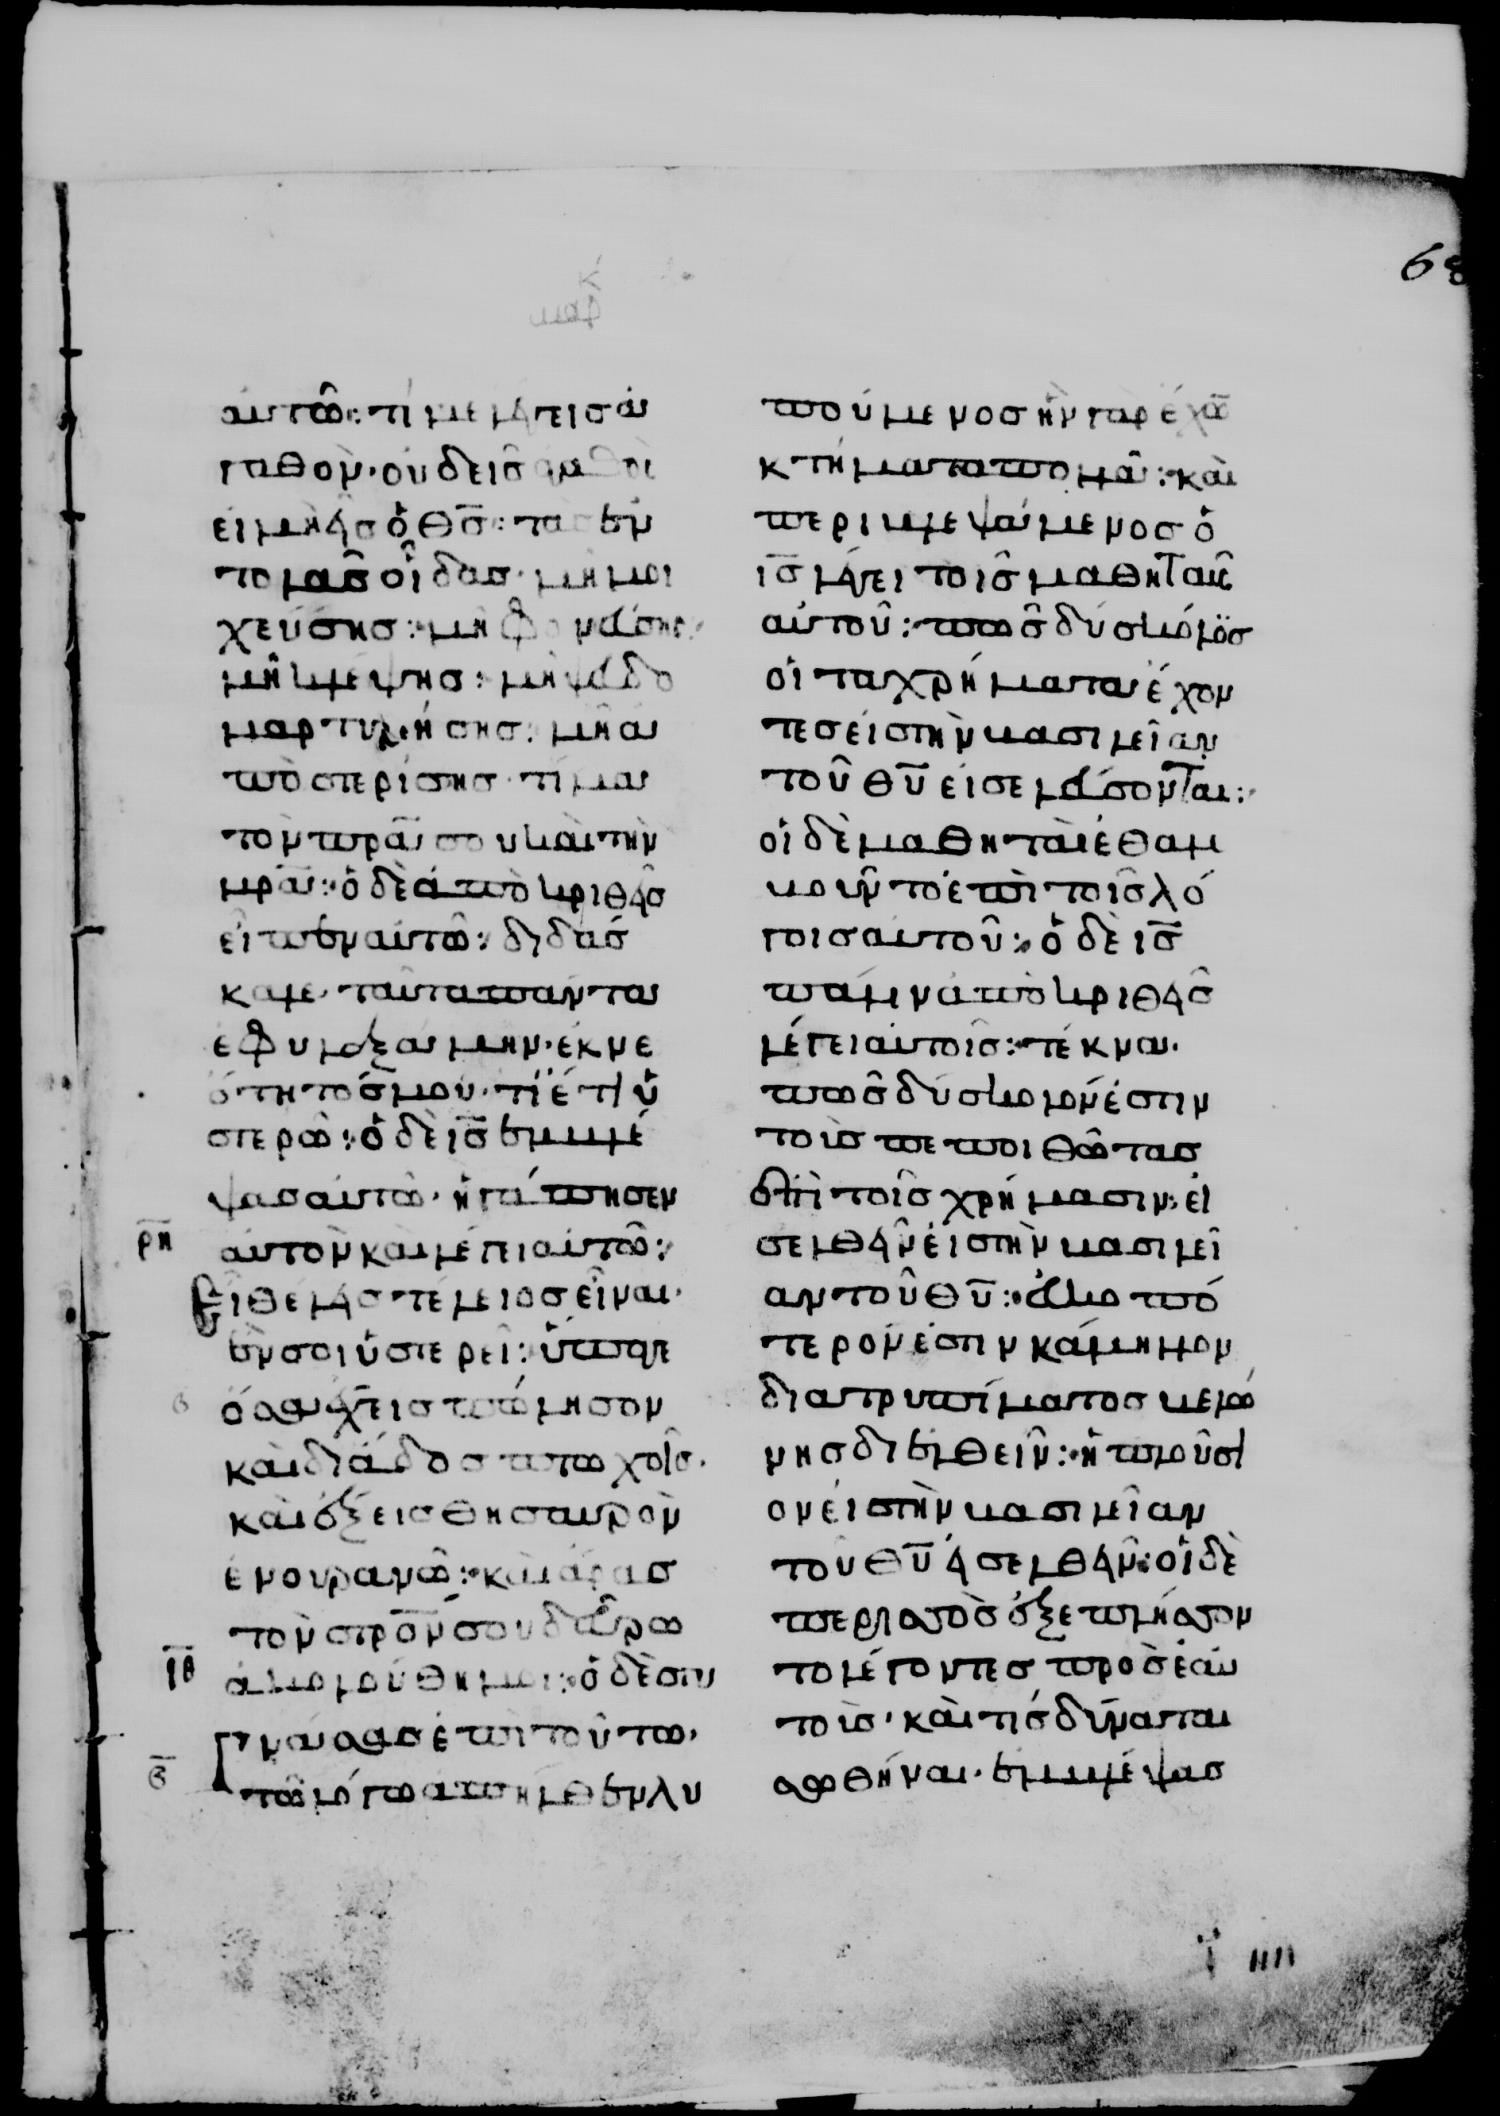 αὐτῶ: τί με λέγεις ἀ
γαθὸν· οὐδεὶς ἀγαθὸς
εἰ μὴ εἷς ὁ θ̅ς̅: τὰς ἐν
τολὰς οἶδας· μὴ μοι
χεύσης: μὴ φονεύσης:
μὴ κλέψης: μὴ ψευδο
μαρτυρήσης: μὴ ἀ
πὸστερίσης· τίμα
τὸν π̅ρ̅α̅ σου καὶ τὴν
μ̅ρ̅α̅: ὁ δὲ ἀπὸκριθεὶς
εἶπεν αὐτῶ: διδάσ
καλε· ταῦτα πάντα
ἐφυλαξάμην· ἐκ νε
ότητός μου· τί ἔτι ὑ
στερῶ: ὁ δὲ ι̅ς̅ ἐμβλέ
ψας αὐτῶ· ἠγάπησεν
ρ̅η̅ αὐτὸν καὶ λέγει αὐτῶ:
Εἰ θέλεις τέλειος εἶναι·
ἕν σοι ὑστερεῖ: ὕπαγε
ὅσα ἔχεις πώλησον
καὶ διάδος πτωχοῖς·
καὶ ἕξεις θησαυρὸν
ἐν οὐρανῶ: καὶ ἄρας
τὸν σ̅τ̅ρ̅ο̅ν̅ σου δεῦρω
ἀκολούθη μοι: ὁ δὲ στυ
γνάσας ἐπὶ τούτω·
τῶ λόγω ἀπῆλθεν λυ
πούμενος ἦν γὰρ ἔχω̅
κτήματα πολλά: καὶ
περιβλεψάμενος ὁ
ι̅ς̅ λέγει τοῖς μαθηταῖς
αὐτοῦ: πῶς δυσκόλως
οἱ τὰ χρήματα ἔχον
τες εἰς τὴν βασιλείαν
τοῦ θ̅υ̅ εἰσελεύσονται:
οἱ δὲ μαθηταὶ ἐθαμ
βοῦντο ἐπὶ τοῖς λό
γοις αὐτοῦ: ὁ δὲ ι̅ς̅
πάλιν ἀπὸκριθεὶς
λέγει αὐτοῖς: τέκνα·
πῶς δύσκολόν ἐστιν
τοὶς πεποιθῶτας
ἐπὶ τοῖς χρήμασιν: εἰ
σελθεῖν εἰς τὴν βασιλεί
αν τοῦ θ̅υ̅: εὐκοπό
τερόν ἐστιν κάμηλον
δια τρυπίματος βελώ
νης διελθεῖν: ἢ πλούσι
ον εἰς τὴν βασιλείαν
τοῦ θ̅υ̅ εἰσελθεῖν: οἱ δὲ
περισσὸς ἐξεπλήσσον
το λέγοντες προς ἑαυ
τοὶς· καὶ τίς δύναται
σωθῆναι· ἐμβλέψας